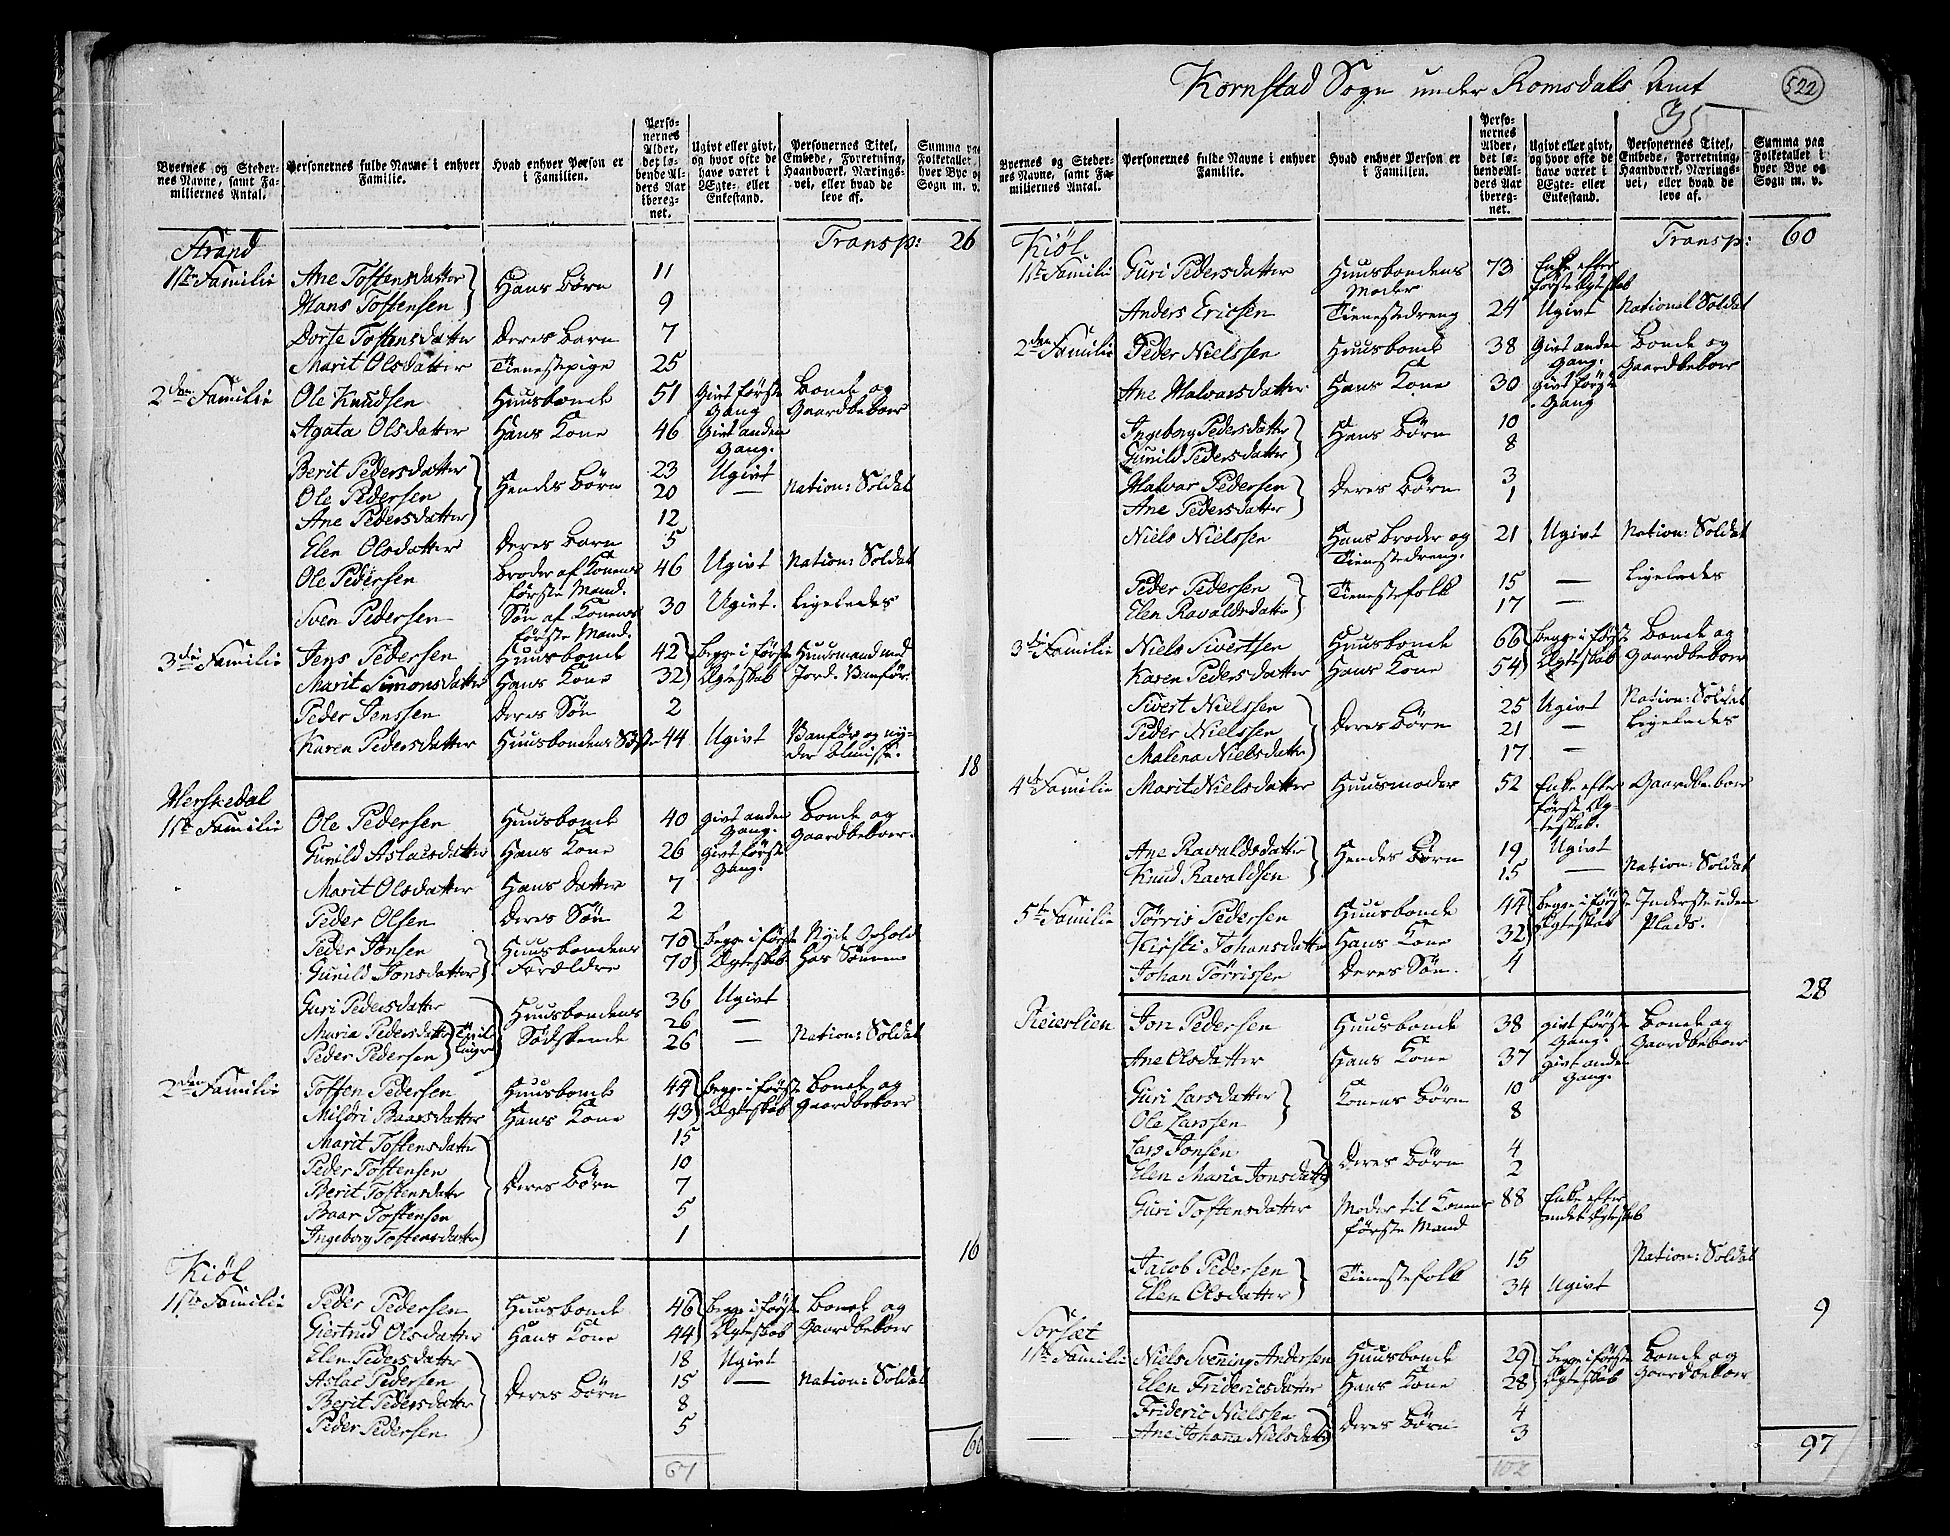 Kornstad Sogn under Romsdals Amt
522
35
Byernes og Steder-
nes Navne, samt Fa-
miliernes Antal.
Personernes fulde Navne i enhver
Familie.
Hvad enhver Person er
i Familien.
Perso-
nernes
Alder,
det lø-
bende Al-
ders Aar
iberegnet.
Ugivt eller givt,
og hvor ofte de
have været i
Ægte- eller
Enkestand.
Personernes Titel,
Embede, Forretning,
Haandværk, Nærings-
vei, eller hvad de
leve af.
Summa paa
Folketallet i
hver Bye og
Sogn m. v.
Strand Transp: 26
1ste Familie Ane Tostensdatter Hans Børn 11
Hans Tostensen 9
Dorte Tostensdatter Deres Barn 7
Marit Olsdatter Tienestepige 25
2den Familie Ole Knudsen Huusbonde 51 Givt første Gang Bonde og Gaardbeboer
Agata Olsdatter Hans Kone 46 Givt anden Gang.
Berit Pedersdatter Hendes Børn 23 Ugivt
Ole Pedersen 20 — Nation: Soldat
Ane Pedersdatter 12
Elen Olsdatter Deres Barn 5
Ole Pedersen Broder af Konens første Mand. 46 Ugivt Nation: Soldat
Sven Pedersen Søn af Konens første Mand. 30 Ugivt. Ligeledes
3die Familie Jens Pedersen Huusbonde 42 Begge i første Ægteskab Huusmand med Jord. Vanfør.
Marit Simonsdatter Hans Kone 32
Peder Jenssen Deres Søn 2
Karen Pedersdatter Huusbondens Syster 44 Ugivt Vanfør og nyder Almisse.
18
Herskedal
1ste Familie Ole Pedersen Huusbonde 40 givt anden Gang. Bonde og Gaardbeboer.
Gunild Aslacsdatter Hans Kone 26 Givt første Gang.
Marit Olsdatter Hans Datter 7
Peder Olsen Deres Søn 2
Peder Jonsen Huusbondens Forældre 70 Begge i først Ægteskab Nyde Ophold hos Sønnen
Gunild Jonsdatter 70
Guri Pedersdatter Huusbondens Sødskende 36 Ugivt
Maria Pedersdatter Tvillinger 26 —
Peder Pedersen 26 — Nation: Soldat
2den Familie Tosten Pedersen Huusbonde 44 Begge i første Ægteskab Bonde og Gaardbeboer
Mildri Baarsdatter Hans Kone 43
Marit Tostensdatter Deres Børn 15
Peder Tostensen 10
Berit Tostensdatr 7
Baar Tostensen 5
Ingeborg Tostensdatter 1
16
Kiøl
1ste Familie Peder Pedersen Huusbonde 46 Begge i første Ægteskab Bonde og Gaardbeboer
Giertrud Olsdatter Hans Kone 44
Elen Pedersdatter Deres Børn 18 Ugivt
Aslac Pedersen 15 — Nation: Soldat
Berit Pedersdatter 8
Peder Pedersen 5
60
61
Byernes og Steder-
nes Navne, samt Fa-
miliernes Antal.
Personernes fulde Navne i enhver
Familie.
Hvad enhver Person er
i Familien.
Perso-
nernes
Alder,
det lø-
bende Al-
ders Aar
ibereg-
net.
Ugivt eller givt,
og hvor ofte de
have været i
Ægte- eller
Enkestand.
Personernes Titel,
Embede, Forretning,
Haandværk, Nærings-
vei, eller hvad de
leve af.
Summa paa
Folketallet i
hver Bye og
Sogn m. v.
Kiøl Transp: 60
1ste Familie Guri Pedersdatter Huusbondens Moder 73 Enke efter første Ægteskab
Anders Ericsen Tienestedreng 24 Ugivt National Soldat
2den Familie Peder Nielssen Huusbonde 38 Givt anden Gang. Bonde og Gaardbeboer
Ane Halvarsdatter Hans Kone 30 Givt første Gang
Ingeborg Pedersdatter Hans Børn 10
Gunild Pedersdatter 8
Halvar Pedersen Deres Børn 3
Ane Pedersdatter 1
Niels Nielssen Hans Broder og Tienestedreng. 21 Ugivt Nation: Soldat
Peder Pedersen Tienestefolk 15 — Ligeledes
Elen Ravaldsdatter 17 —
3die Familie Niels Sivertsen Huusbonde 66 Begge i første Ægteskab Bonde og Gaardbeboer
Karen Pedersdatter Hans Kone 54
Sivert Nielssen Deres Børn 25 Ugivt Nation: Soldat
Peder Nielssen 21 — Ligeledes
Malena Nielsdatter 17 —
4de Familie Marit Nielsdatter Huusmoder 52 Enke efter første Ægteskab. Gaardbeboer
Ane Ravaldsdatter Hendes Børn 19 Ugivt
Knud Ravaldsen 15 — Nation: Soldat
5te Familie Tørris Pedersen Huusbonde 44 Begge i første Ægteskab Inderste uden Plads.
Kirsti Johansdatter Hans Kone 32
Johan Tørrissen Deres Søn. 4
28
Reierlien Jon Pedersen Huusbonde 38 givt første Gang. Bonde og Gaardbeboer
Ane Olsdatter Hans Kone 37 Givt anden Gang.
Guri Larsdatter Konens Børn 10
Ole Larssen 8
Lars Jonsen Deres Børn 4
Elen Maria Jonsdatter 2
Guri Tostensdatter Moder til Konens første Mand 88 Enke efter andet Ægteskab
Jacob Pedersen Tienestefolk 15 Nation: Soldat
Elen Olsdatter 34 Ugivt
9
Torsæt
1ste Familie Niels Svening Andersen Huusbonde 29 Begge i første Ægteskab Bonde og Gaardbeboer
Elen Fridericsdatter Hans Kone 28
Frideric Nielssen Deres Børn 4
Ane Johana Nielsdatter 3
97
102